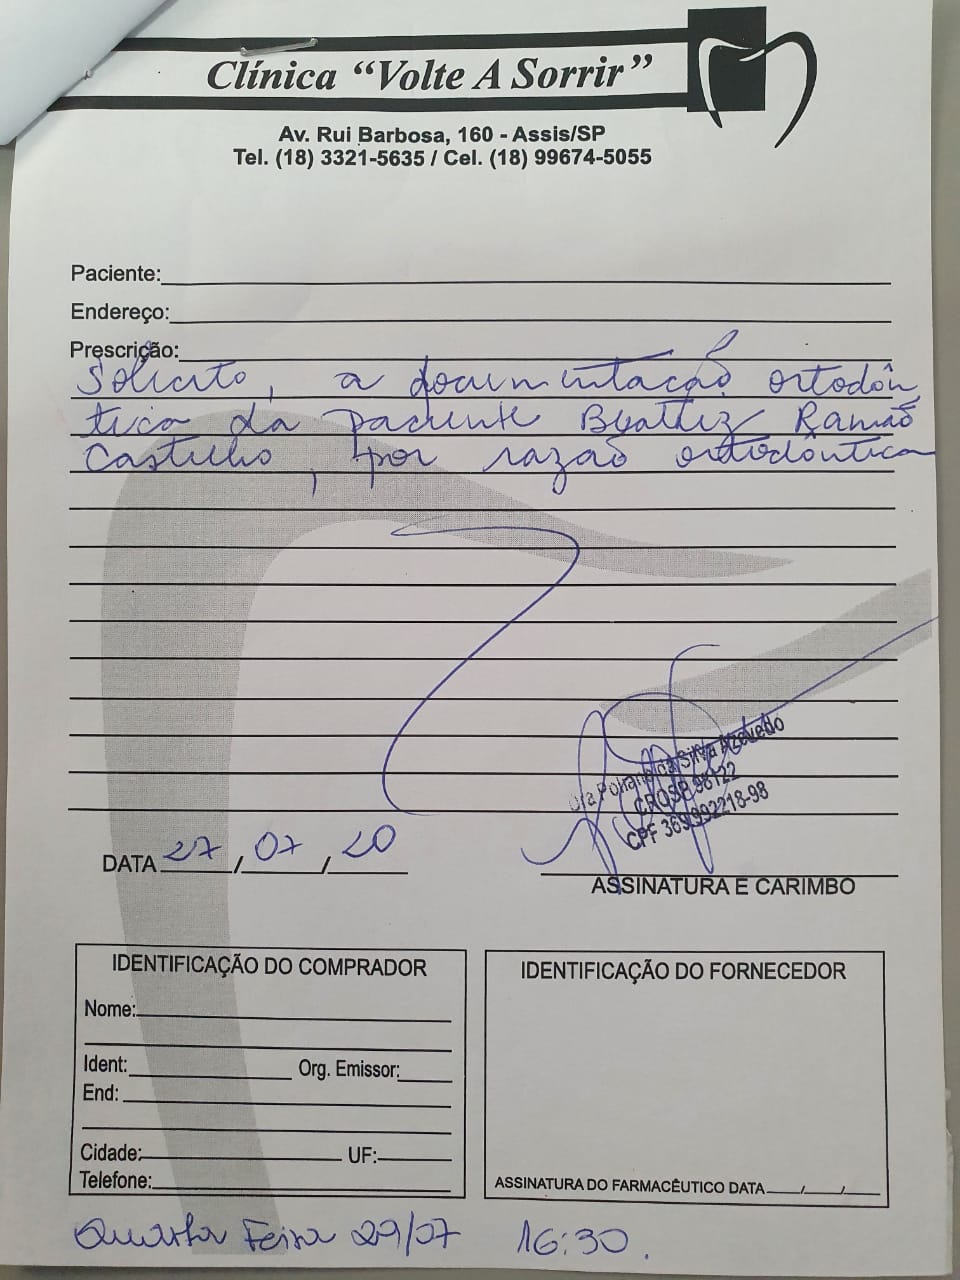 Clínica “Volte A Sorrir”
Av. Rui Barbosa, 160 - Assis/SP
Tel. (18) 3321-5635 / Cel. (18) 99674-5055
Paciente:
Endereço:
Prescrição:
Solicito, a documentação ortodôn
tica da paciente Beatriz Ramão
Castilho, por razão ortodôntica
Dra Poliana da Silva Azevedo
CROSP 98122
CPF 369.992218-98
DATA 27/07/20
ASSINATURA E CARIMBO
IDENTIFICAÇÃO DO COMPRADOR
Nome:
Ident: Org. Emissor:
End:
Cidade: UF:
Telefone:
IDENTIFICAÇÃO DO FORNECEDOR
ASSINATURA DO FARMACÊUTICO DATA / /
Quarta Feira 29/07 16:30.